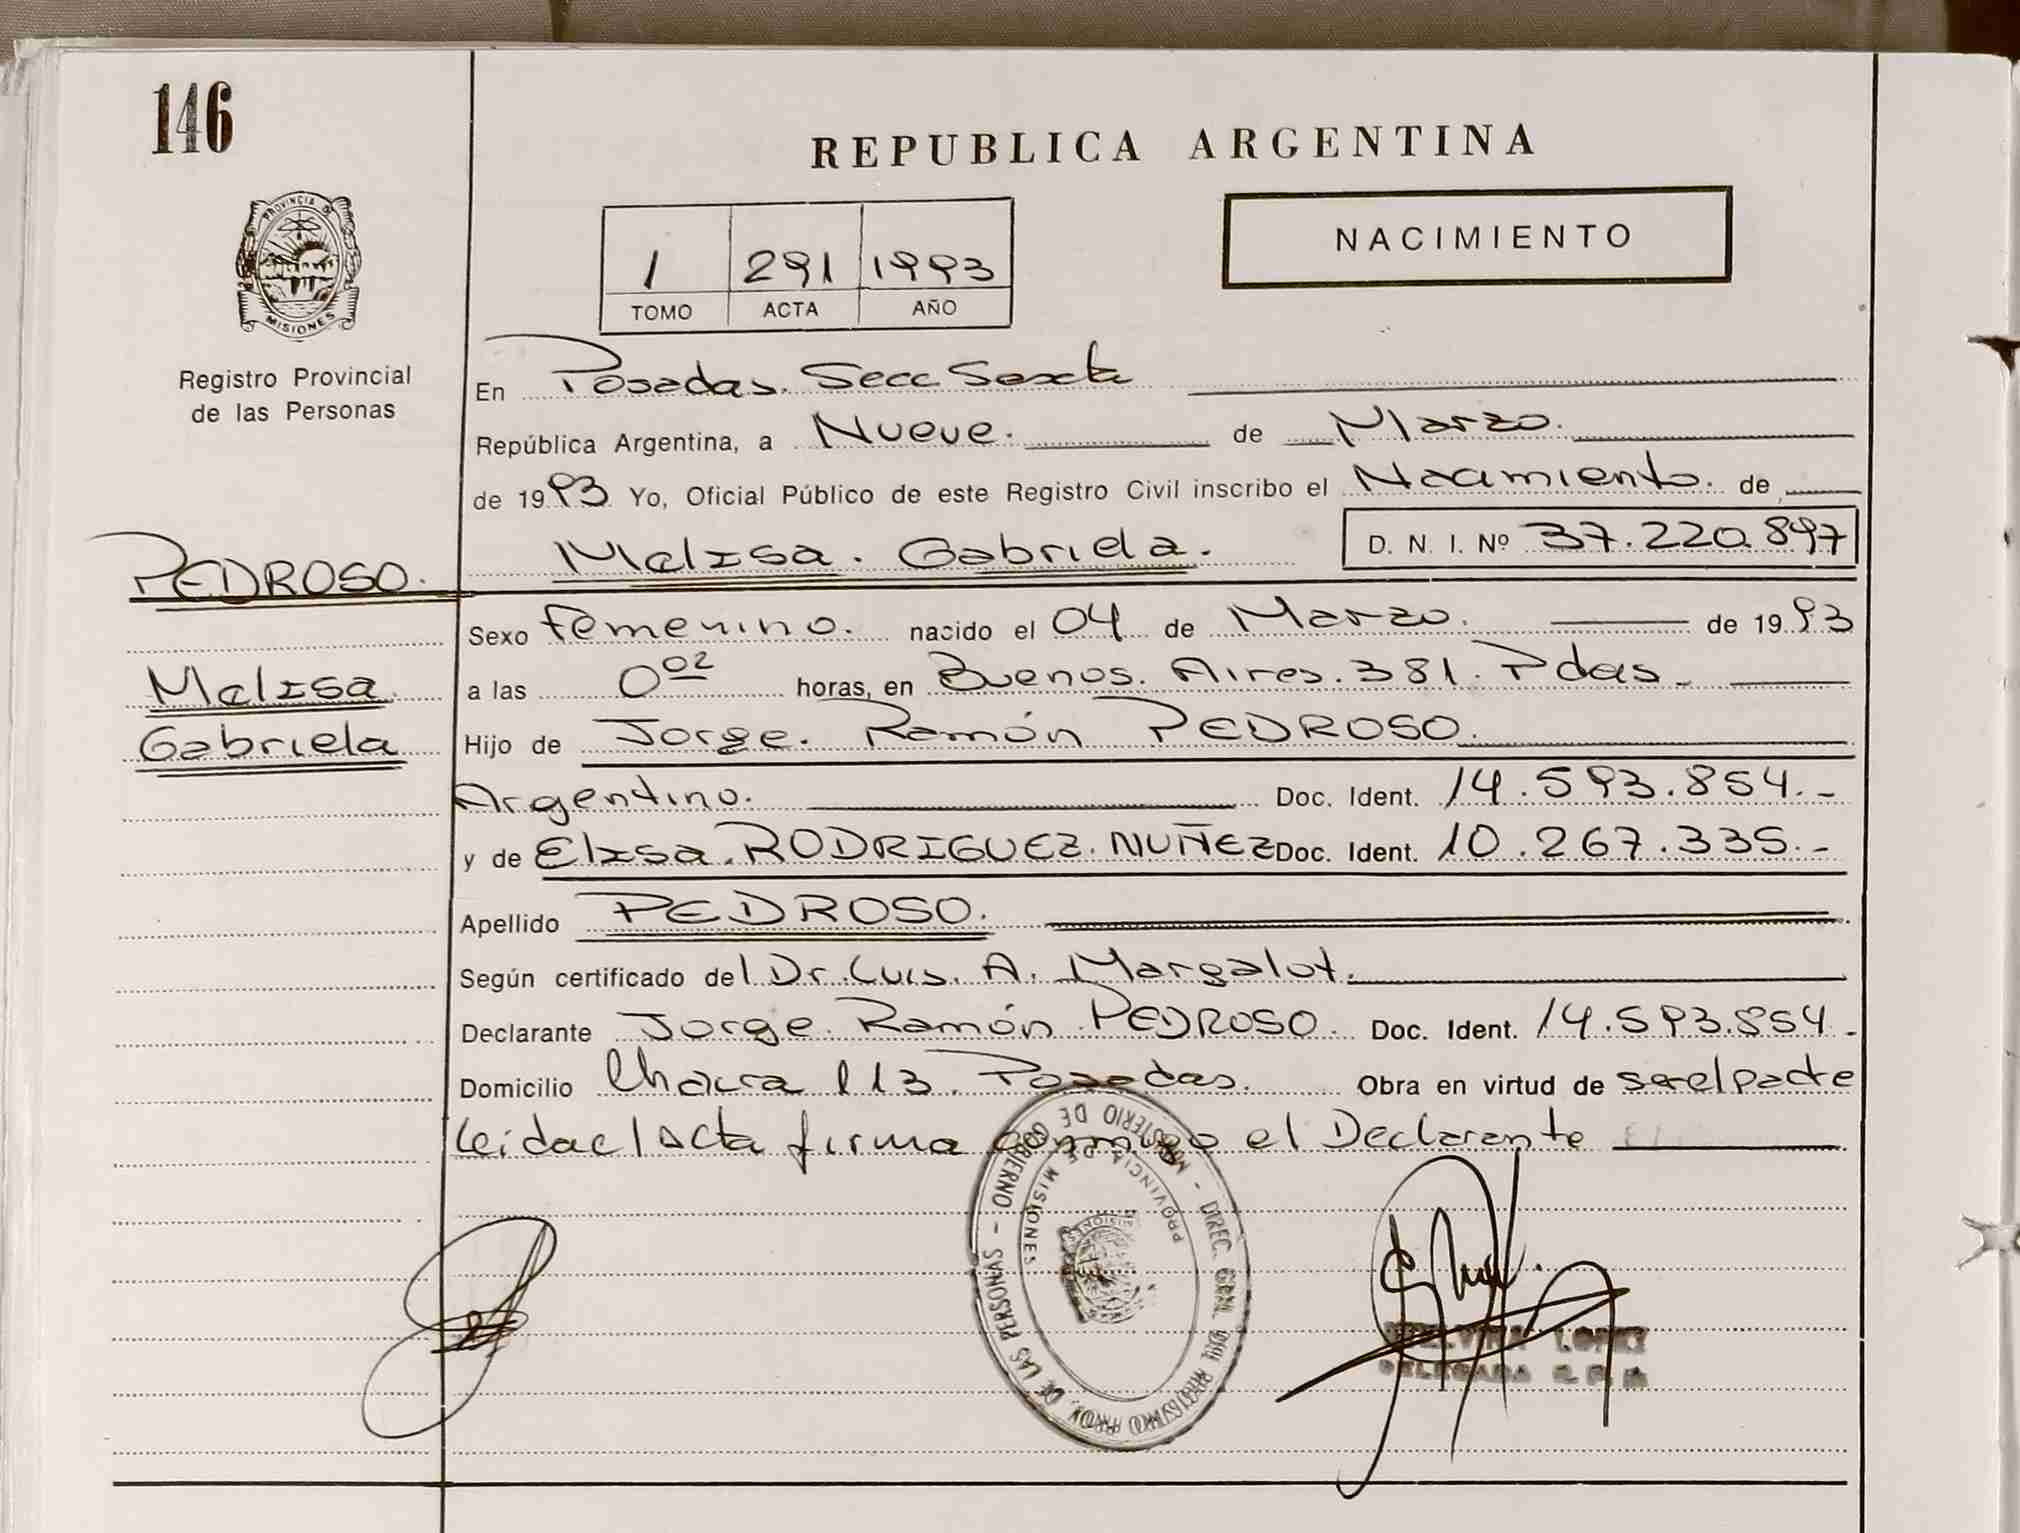 146
REPUBLICA ARGENTINA
PROVINCIA D
MISIONES
Registro Provincial
de las Personas
1 291 1993
TOMO ACTA AÑO
NACIMIENTO
En Posadas. Secc Sexta
República Argentina, a Nueve. de Marzo.
de 1993 Yo, Oficial Público de este Registro Civil inscribo el Nacimiento. de
Melisa. Gabriela. D. N. I. Nº 37.220.897
PEDROSO.
Melisa
Gabriela
Sexo femenino. nacido el 04 de Marzo. de 1993
a las 0 02 horas, en Buenos. Aires. 381. Pdas.
Hijo de Jorge. Ramón PEDROSO.
Argentino. Doc. Ident. 14.593.854.-
y de Elisa. RODRIGUEZ. NUÑEZ Doc. Ident. 10.267.335.-
Apellido PEDROSO.
Según certificado del Dr. Luis. A. Margalot.
Declarante Jorge. Ramón. PEDROSO. Doc. Ident. 14.593.854.-
Domicilio Chacra 113. Posadas. Obra en virtud de ser el padre
Leida el Acta firma conmigo el Declarante
MINISTERIO DE GOBIERNO - DIREC. GRAL. DEL REGISTRO PROV. DE LAS PERSONAS -
PROVINCIA DE MISIONES
LOPEZ
DELEGADA R. P.